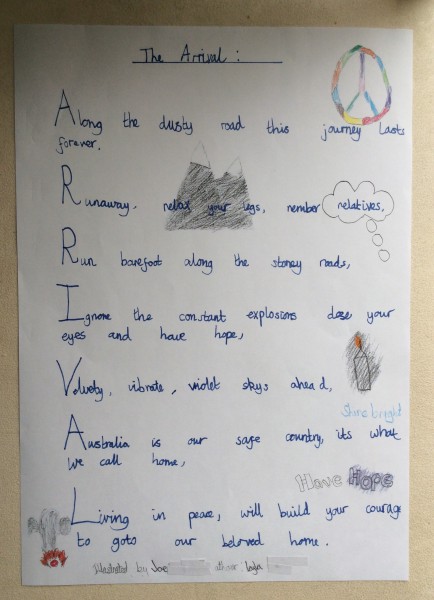 The Arrival :
Along the dusty road this journey lasts
forever.
Runaway, relax your legs, rember relatives,
Run barefoot along the stoney roads,
Ignore the constant explosions close your
eyes and have hope,
Velvety, vibrate, violet skys ahead,
Shine bright
Australia is our safe country, its what
we call home,
Have Hope
Living in peace, will build your courage
to goto our beloved home.
Illustrated by Joe author: Layla